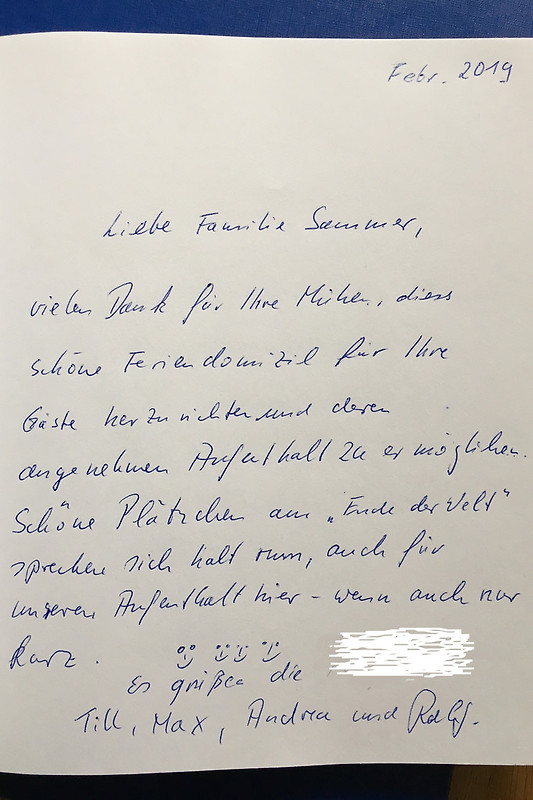 Febr. 2019
Liebe Familie Sammer,
vielen Dank für Ihre Mühen, dieses
schöne Feriendomizil für Ihre
Gäste herzurichten und deren
angenehmen Aufenthalt zu ermöglichen.
Schöne Plätzchen am „Ende der Welt“
sprechen sich halt rum, auch für
unseren Aufenthalt hier – wenn auch nur
kurz.
Es grüßen die
Till, Max, Andrea und Ralf.